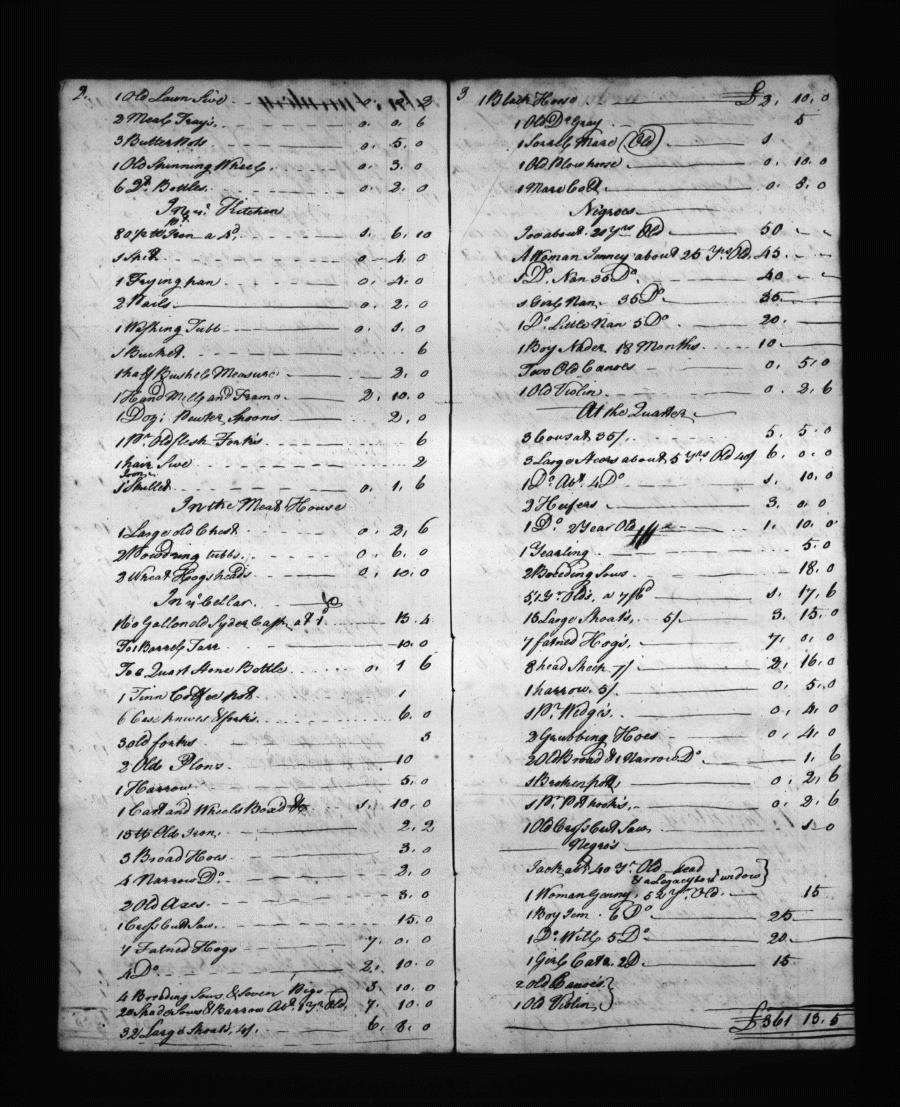 2.
1 Old Lawn Sive 2
2 Meal Trays. 0. 0. 6
3 Butter Pots 0. 5. 0
1 Old Spinning Wheel. 0. 3. 0
6 Qt. Bottles. 0. 2. 0
In ye. Kitchen
80 Iron a 4d. 1. 6. 10
1 Spit 0. 4. 0
1 Frying pan 0. 2. 0
2 Pails 0. 2. 0
1 Washing Tubb 0. 1. 0
1 Bucket. 6
1 half Bushel Measure 2. 0
1 Hand Mill and Frame. 2. 10. 0
1 Doz: Pewter Spoons 2. 0
1 Pr. Old flesh Forks. 6
1 hair Sive 2
1 Iron Skillet 0. 1. 6
In the Meat House
1 Large old Chest 0. 2. 6
2 Powdring tubbs. 0. 6. 0
3 Wheat Hogsheads 0. 10. 0
In ye Cellar.
160 Gallon old Syder Cask at 1d 13. 4
To 1 Barrel Tarr 10. 0
To 6 Quart Stone Bottle 0. 1 6
1 Tinn Coffee pot. 1
6 Case knives & forks. 6. 0
3 old forks 3
2 Old Plows 10
1 Harrow 5. 0
1 Cart and Wheels 1. 10. 0
13 lb Old Iron, 2. 2
3 Broad Hoes 3. 0
4 Narrow Do. 2. 0
2 Old Axes 3. 0
1 Cross Cutt Saw. 15. 0
7 Fatned Hogs 7. 0. 0
4 Do. 2. 10. 0
4 Breeding Sows & Seven Pigs 3. 10. 0
20 Sows & Barrow Abt. 1 yr Old, 7. 10. 0
32 Large Shoats, 4/. 6. 8. 0
3
1 Black Horse £2. 10. 0
1 Old Do. Gray 5
1 Sorrel Mare Old 1
1 Old Plow horse 0. 10. 0
1 Mare Colt 0. 5. 0
Negroes
Joe about 20 yrs Old 50
A Woman Jenney about 25 yrs Old 45.
1 Do. Nan 35 Do. 40
1 Girl Nan. 35 Do 35
1 Do. Little Nan 5 Do. 20.
1 Boy 18 Months 10
Two Old Canoes 0. 5. 0
1 Old Violin 0. 2. 6
At the Quarter
3 Cows at 35/. 5. 5. 0
3 Large Steers about 5 yrs Old 40/ 6. 0. 0
1 Do. Abt. 4 Do 1. 10. 0
2 Heifers 3. 0. 0
1 Do. 2 Year Old 1. 10. 0
1 Yearling 5. 0
2 Breeding Sows 18. 0
5, 1 Yr. Olds, a 7/6 1. 17. 6
15 Large Shoats, 5/ 3. 15. 0
7 fatned Hogs, 7. 0. 0
8 head Sheep 7/ 2. 16. 0
1 harrow. 5/. 0. 5. 0
1 Pr. Wedges 0. 4. 0
2 Grubbing Hoes 0. 4. 0
2 Old Broad & 1 Narrow Do. 1. 6
1 Broken pot 0. 2. 6
1 Pr. Pot hooks, 0. 2. 6
1 Old Cross Cut Saw 1. 0
Negros
Jack abt. 40 Yr. Old dead
& a Legacy to ye widow
1 Woman Genny, 52 yr. Old. 15
1 Boy Jem 6 Do. 25
1 Do. Will 5 Do. 20
1 Girl Cate 2 D. 15
2 old Canoes
1 Old Violin
£361 13. 5